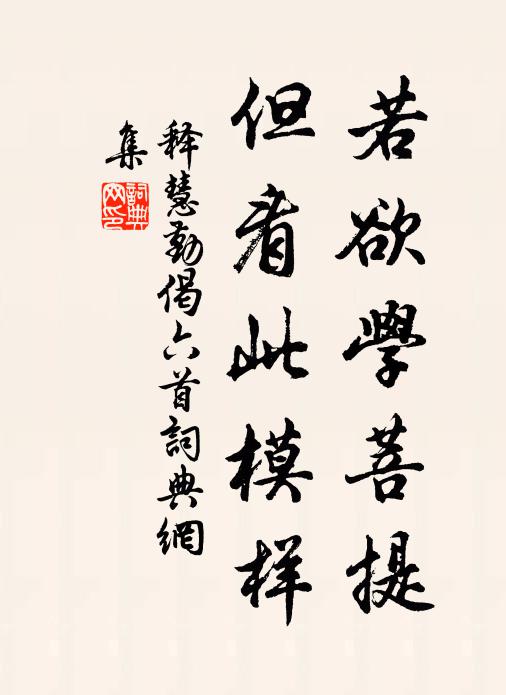 若欲學菩提
但看此模样
释慧勤偈六首詞典網
集
詞典
网印